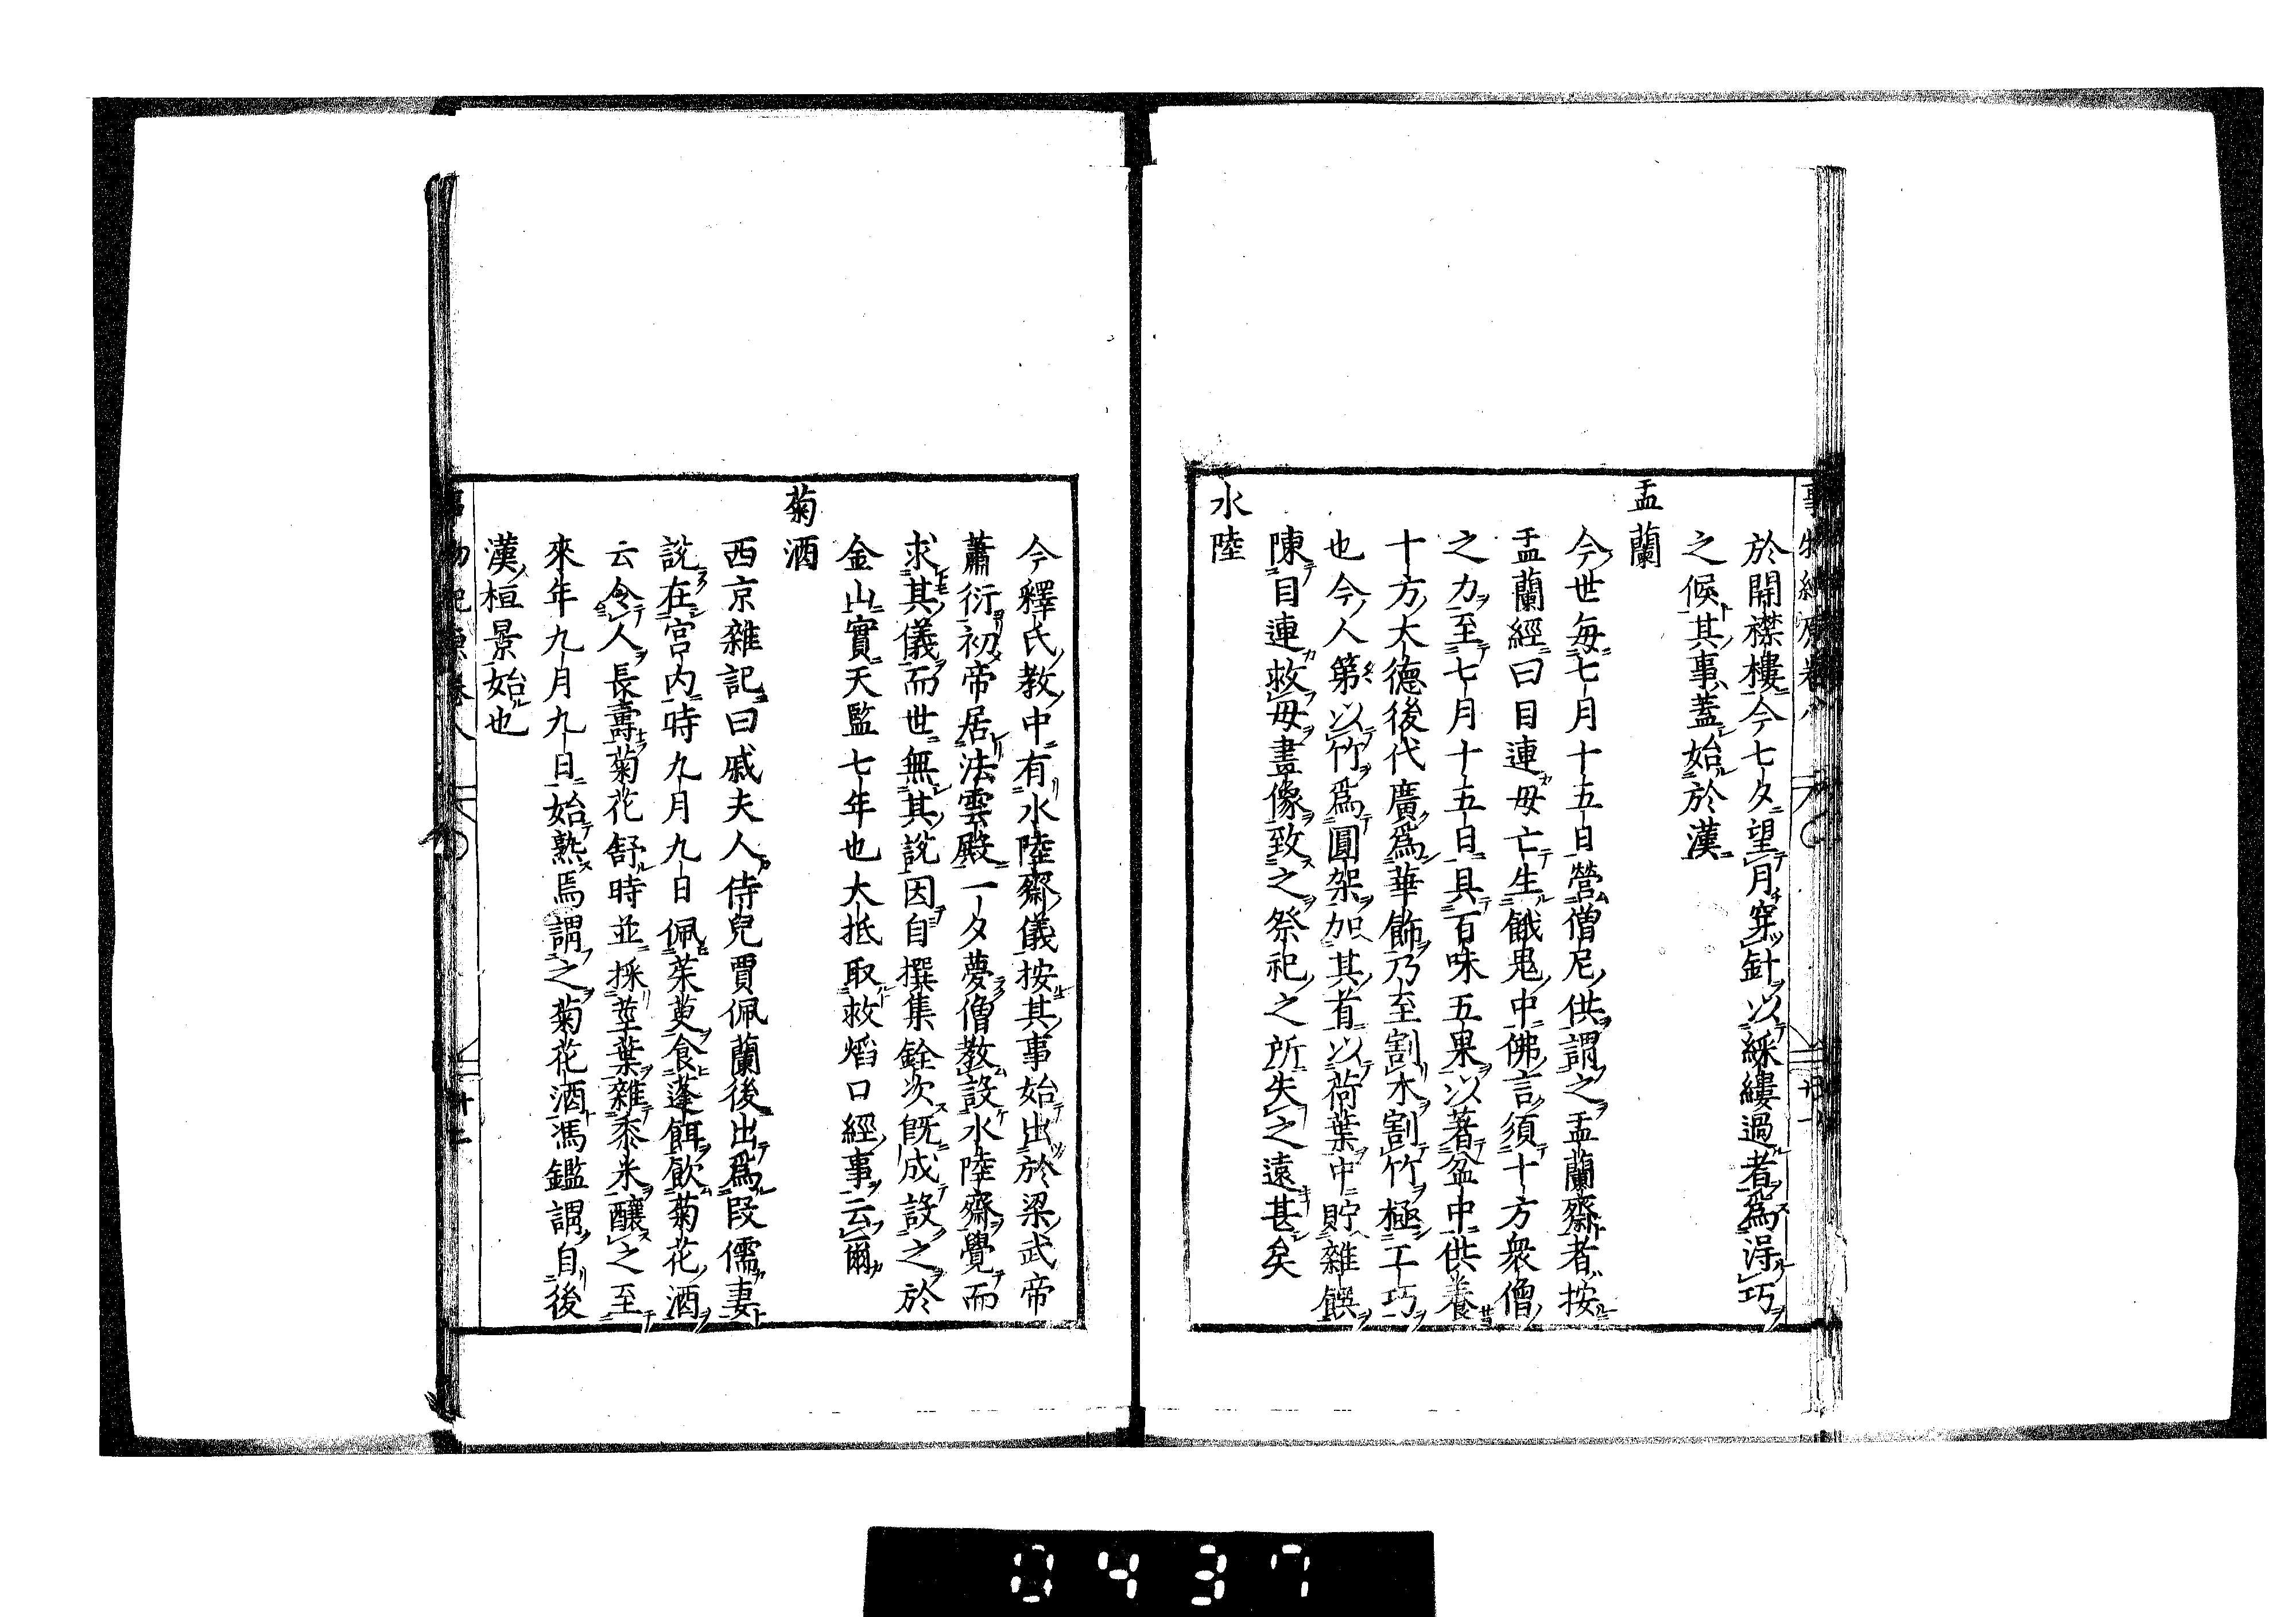 於開襟樓今七夕望月穿針以綵縷過者爲淂巧
之候其事蓋始於漢
盂蘭
今世每七月十五日營僧尼供謂之盂蘭齋者按
盂蘭經曰目連母亡生餓鬼中佛言須十方衆僧
之力至七月十五日具百味五果以著盆中供養
十方大德後代廣爲華飾乃至割木割竹極工巧
也今人第以竹爲圓架加其首以荷葉中貯雜饌
陳目連救母畫像致之祭祀之所失之遠甚矣
水陸
今釋氏教中有水陸齋儀按其事始出於梁武帝
蕭衍初帝居法雲殿一夕夢僧教設水陸齋覺而
求其儀而世無其說因自撰集銓次既成設之於
金山實天監七年也大抵取救焰口經事云爾
菊酒
西京雜記曰戚夫人侍兒賈佩蘭後出爲段儒妻
說在宮內時九月九日佩茱萸食蓬餌飲菊花酒
云令人長壽菊花舒時並採莖葉雜黍米釀之至
來年九月九日始熟焉謂之菊花酒馮鑑謂自後
漢桓景始也
0437